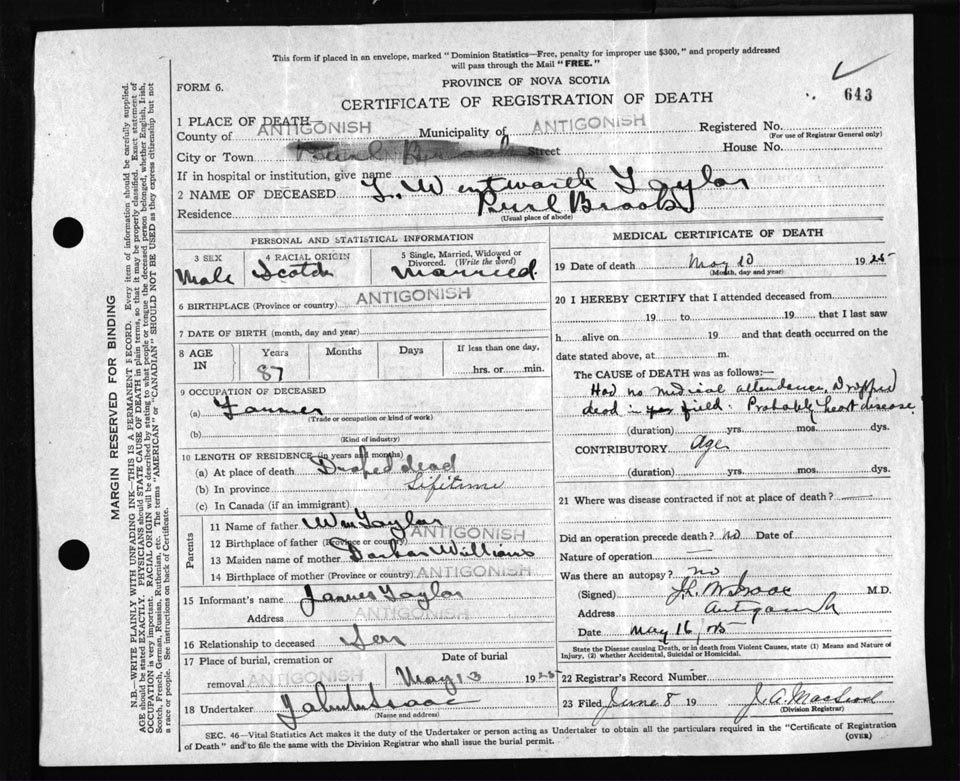 This form if placed in an envelope, marked "Dominion Statistics—Free, penalty for improper use $300," and properly addressed
will pass through the Mail "FREE."
PROVINCE OF NOVA SCOTIA
FORM 6.
CERTIFICATE OF REGISTRATION OF DEATH
643
1 PLACE OF DEATH—
County of ANTIGONISH Municipality of ANTIGONISH Registered No.
(For use of Registrar General only)
City or Town Street House No.
If in hospital or institution, give name
2 NAME OF DECEASED L. Wentworth Taylor
Residence Purl Brook
(Usual place of abode)
PERSONAL AND STATISTICAL INFORMATION
3 SEX Male
4 RACIAL ORIGIN Scotch
5 Single, Married, Widowed or Divorced. (Write the word) Married
6 BIRTHPLACE (Province or country) ANTIGONISH
7 DATE OF BIRTH (month, day and year)
8 AGE IN Years Months Days If less than one day,
87 hrs. or min.
9 OCCUPATION OF DECEASED
(a) Farmer
(Trade or occupation or kind of work)
(b)
(Kind of industry)
10 LENGTH OF RESIDENCE (in years and months)
(a) At place of death Droped dead
(b) In province Lifetime
(c) In Canada (if an immigrant)
Parents
11 Name of father Wm Taylor
12 Birthplace of father (Province or country) ANTIGONISH
13 Maiden name of mother Barbar Williams
14 Birthplace of mother (Province or country) ANTIGONISH
15 Informant's name James Taylor
Address ANTIGONISH
16 Relationship to deceased Son
17 Place of burial, cremation or removal ANTIGONISH
Date of burial May 13 1925
18 Undertaker
(Name and address)
MEDICAL CERTIFICATE OF DEATH
19 Date of death May 10 1925
(Month, day and year)
20 I HEREBY CERTIFY that I attended deceased from
19 to 19 that I last saw
h alive on 19 and that death occurred on the
date stated above, at m.
The CAUSE OF DEATH was as follows:—
Had no medical attendance. Dropped
dead in field. Probably heart disease
(duration) yrs. mos. dys.
CONTRIBUTORY Age
(duration) yrs. mos. dys.
21 Where was disease contracted if not at place of death? —
Did an operation precede death? no Date of
Nature of operation —
Was there an autopsy? no
(Signed) M.D.
Address Antigonish
Date May 16/25
State the Disease causing Death, or in death from Violent Causes, state (1) Means and Nature of
Injury, (2) whether Accidental, Suicidal or Homicidal.
22 Registrar's Record Number
23 Filed June 8 19 J. A. MacLeod
(Division Registrar)
SEC. 46—Vital Statistics Act makes it the duty of the Undertaker or person acting as Undertaker to obtain all the particulars required in the "Certificate of Registration
of Death" and to file the same with the Division Registrar who shall issue the burial permit.
(OVER)
MARGIN RESERVED FOR BINDING
N.B.—WRITE PLAINLY WITH UNFADING INK—THIS IS A PERMANENT RECORD. Every item of information should be carefully supplied.
AGE should be stated EXACTLY. PHYSICIANS should STATE CAUSE OF DEATH in plain terms, so that it may be properly classified. Exact statement of
OCCUPATION is very important. RACIAL ORIGIN will be described by stating to what people or tongue the deceased person belonged, whether English, Irish,
Scotch, French, German, Russian, Ruthenian, etc. The terms "AMERICAN" or "CANADIAN" SHOULD NOT BE USED as they express citizenship but not
a race or people. See instructions on back of Certificate.